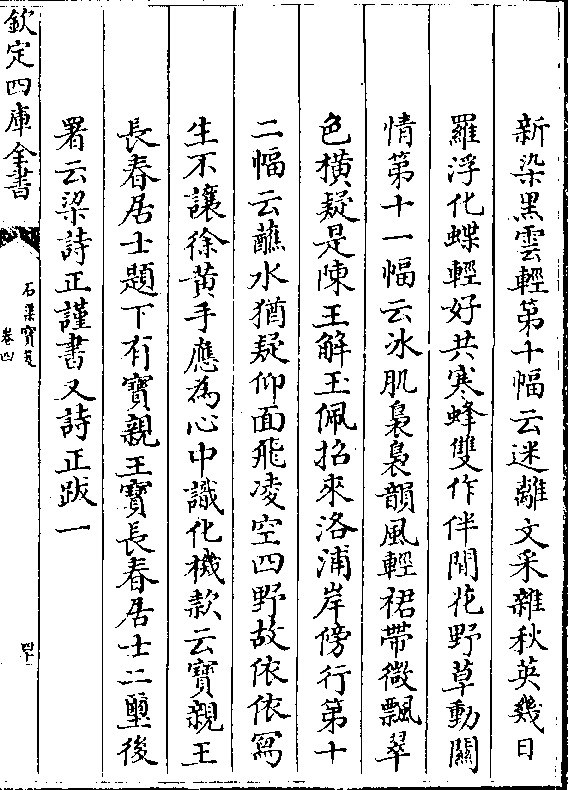 新染黑雲輕第十幅云迷離文采雜秋英幾日
羅浮化蝶輕好共寒蜂雙作伴閒花野草動關
情第十一幅云冰肌裊裊韻風輕裙帶微飄翠
色橫疑是陳王解玉佩招來洛浦岸傍行第十
二幅云蘸水猶疑仰面飛凌空四野故依依寫
生不讓徐黃手應為心中識化機款云寶親王
長春居士題下有寶親王寶長春居士二璽後
署云梁詩正謹書又詩正跋一
欽定四庫全書
石渠寶笈
卷四